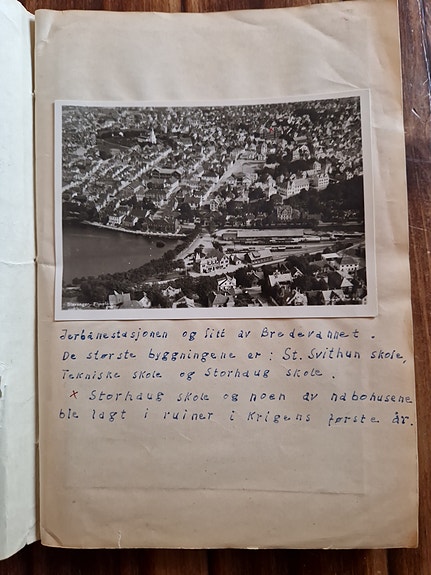 Stavanger,
Jerbanestasjonen og litt av Bredevannet.
De største byggningene er: St. Svithun skole,
Tekniske skole og Storhaug skole.
x Storhaug skole og noen av nabohusene
ble lagt i ruiner i Krigens første år.